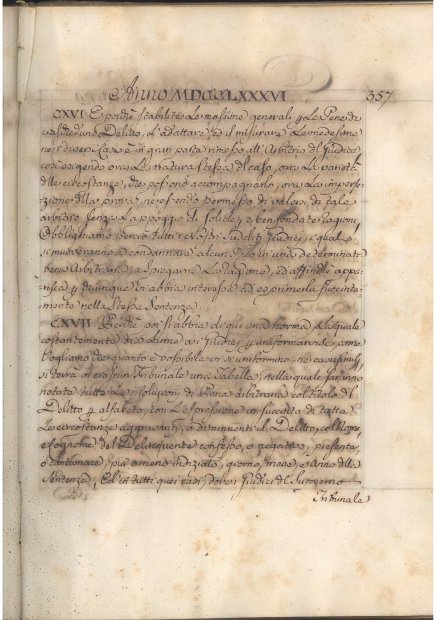 Anno MDCCLXXXVI
357
CXVI E poichè stabilite le massime generali, e le Pene di
ciaschedun Delitto, l'adattare, ed il misurare le medesime
nei diversi Casi è in gran parte rimesso all'Arbitrio del Giudice,
così esigendo ora la natura stessa del caso, ora la varietà
delle circostanze, che possono accompagnarlo, ora la imperfe-
zione della prova, nè essendo permesso di valersi di tale
arbitrio senza l'appoggio di solide, e ben fondate ragioni,
Obblighiamo perciò tutti i Nostri Giudici, i quali
si muoveranno a condannare alcuno in una determinata
pena Arbitraria, a spiegarne la ragione, ed affinchè appa-
risca a chiunque vi abbia interesse ad esprimerla succinta-
mente nella stessa Sentenza.
CXVII poi si abbia di qui una norma, la quale
costantemente dia lume ai Giudici per uniformarvisi, come
vogliamo che quanto è possibile si uniformino nei casi simili,
si terrà in ciascun Tribunale una Tabella, nella quale saranno
notate tutte le risoluzioni di Pena arbitraria col titolo del
Delitto per alfabeto, con l'espressione in succinto di tutte
le circostanze aggravanti, o diminuenti il Delitto, col Nome,
e Cognome del Delinquente confesso, o negativo, presente,
o contumace, più o meno indiziato, giorno, mese, e Anno della
Sentenza, Ed in tutti quei casi, dove i Giudici del Supremo
Tribunale